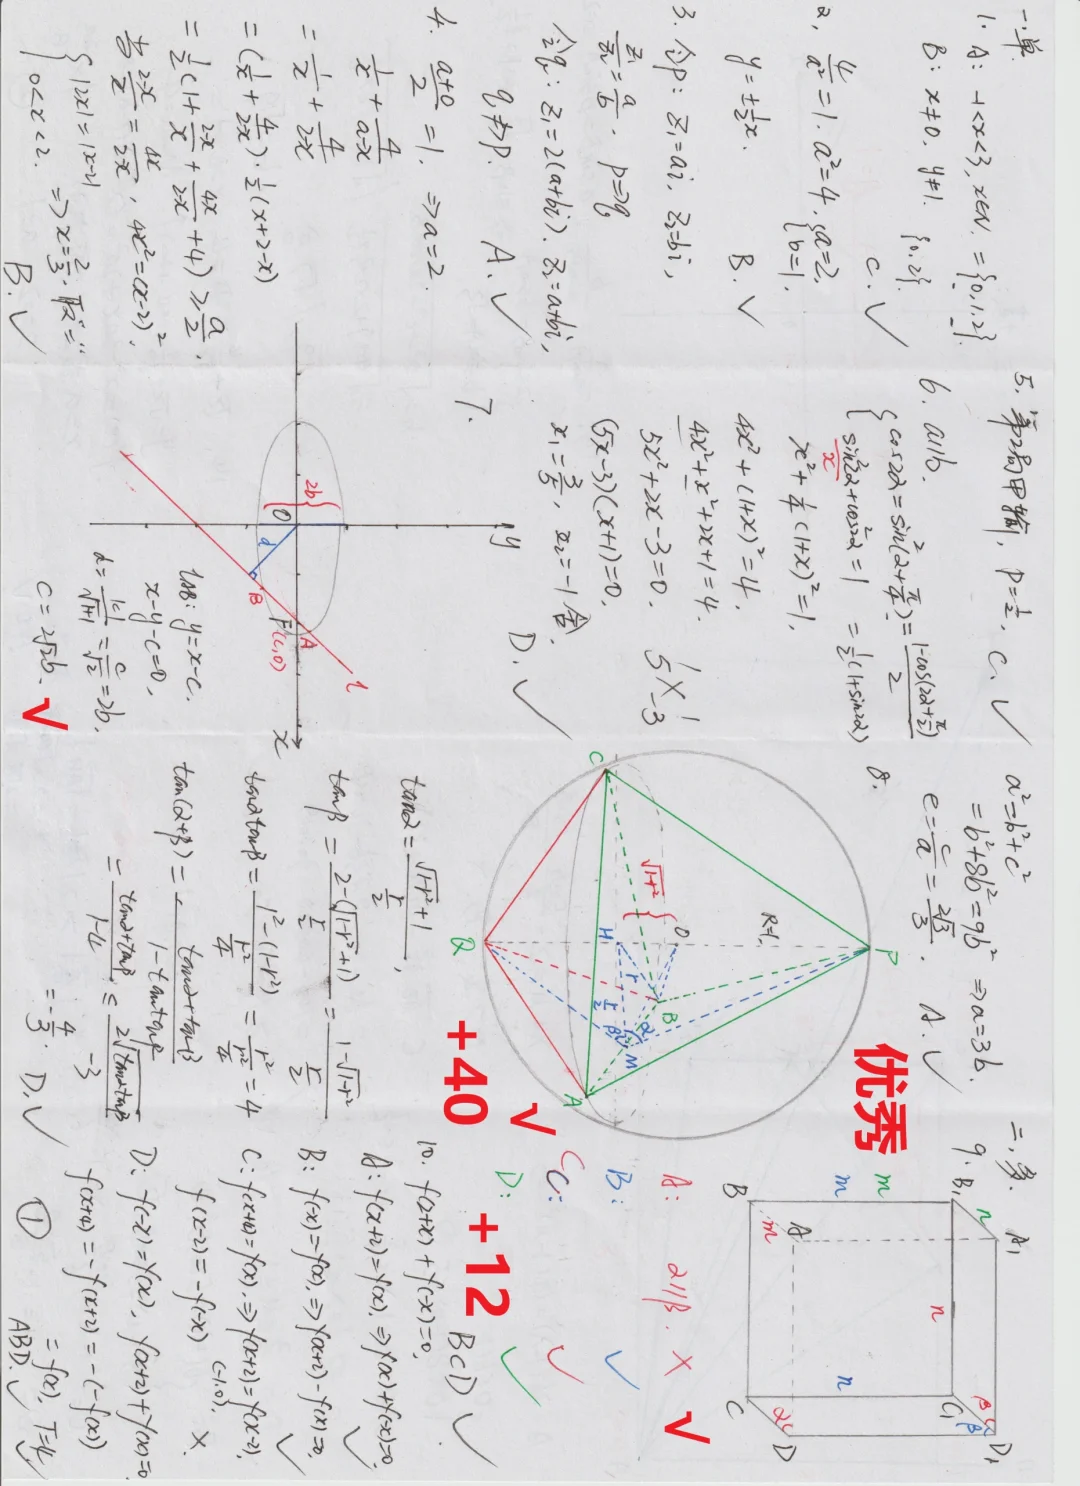 一.单.
1. A: -1<x<3, x∈N. = {0,1,2}.
B: x≠0, y≠1. {0,2}.
C. √
2. 4/a² = 1. a²=4. {a=2. b=1.
y=±½x. B. √
3. 令p: z₁=ai, z₂=bi,
z₁/z₂=a/b. p⇒q
令q: z₁=2(a+bi). z₂=a+bi,
q⇏p. A. √
4. (a+0)/2 = 1. ⇒a=2.
1/x + 4/(a-x)
= 1/x + 4/(2-x)
= (1/x + 4/(2-x))·½(x+2-x)
= ½(1+ (2-x)/x + 4x/(2-x) +4) ≥ 9/2.
当 (2-x)/x = 4x/(2-x), 4x²=(x-2)².
{|2x|=|x-2| 0<x<2. ⇒x=2/3. 取"=".
B. √
5. 第2局甲输, P=½, C. √
6. a∥b.
{cos2α=sin²(α+π/4)=(1-cos(2α+π/2))/2
sin²2α+cos²2α=1 =½(1+sin2α)
x
x²+¼(1+x)²=1,
4x²+(1+x)²=4.
4x²+x²+2x+1=4.
5x²+2x-3=0.
(5x-3)(x+1)=0.
x₁=3/5, x₂=-1舍.
D. √
7.
y
x
O
2b
d
B
A
F(c,0)
l
lAB: y=x-c.
x-y-c=0,
d=|c|/√(1+1)=c/√2=2b,
c=2√2b. √
a²=b²+c²
=b²+8b²=9b² ⇒a=3b.
e=c/a=2√2/3. A. √
8.
P
C
A
B
Q
O
H
M
R=1,
√(1-r²)
r
r/2
α
β
tanα=(√(1-r²)+1)/(r/2),
tanβ=(2-(√(1-r²)+1))/(r/2)=(1-√(1-r²))/(r/2)
tanαtanβ=(1²-(1-r²))/(r²/4)=r²/(r²/4)=4
tan(α+β)=(tanα+tanβ)/(1-tanαtanβ)
=(tanα+tanβ)/(1-4)≤2√(tanαtanβ)/-3
=-4/3. D. √
优秀
+40 √
二.多.
9.
B₁
A₁
C₁
D₁
B
A
C
D
m
n
A: α∥β. ×
B: √
C: √
D: √
BCD √
+12 √
10. f(a+x)+f(-x)=0,
A: f(x+2)=f(x). ⇒f(x)+f(-x)=0. √
B: f(-x)=f(x). ⇒f(x+2)-f(x)=0. √
C: f(x+a)=f(x). ⇒f(x+2)=f(x-2),
f(x-2)=-f(-x) (-1,0). ×
D: f(-x)=f(x), f(x+2)+f(x)=0
f(x+4)=-f(x+2)=-(-f(x))
=f(x). T=4. √
① ABD. √